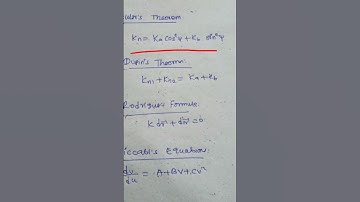 uler's Theorem:
Kn = Ka cos²ψ + Kb sin²ψ
Dupin's Theorem:
Kn1 + Kn2 = Ka + Kb
Rodrigues Formula:
K dr + dN = 0
iccati's Equation:
dv/du = A + Bv + Cv²